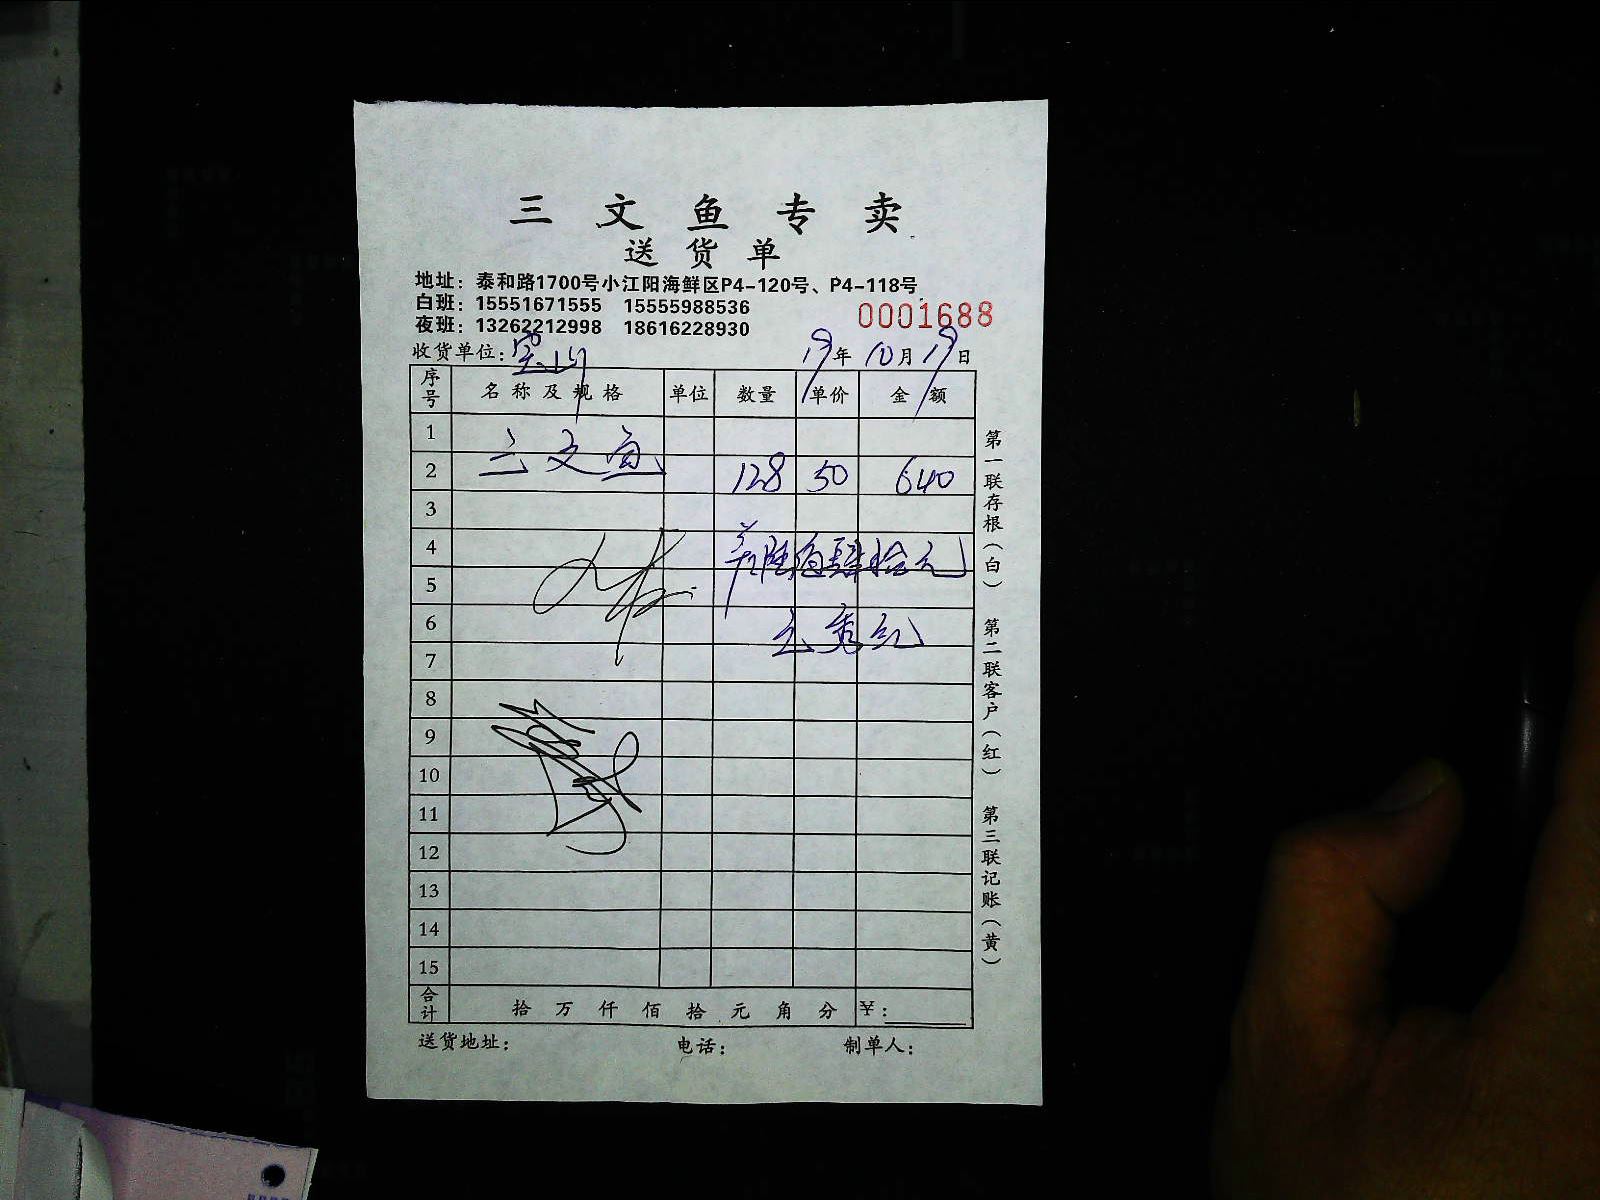 三文鱼专卖
送货单
地址：泰和路1700号小江阳海鲜区P4-120号、P4-118号
白班：15551671555 15555988536
夜班：13262212998 18616228930
0001688
收货单位：宝山 19年10月19日
序号 名称及规格 单位 数量 单价 金额
1
2 三文鱼 128 50 640
3
4 陆佰肆拾元
5
6
7
8
9
10
11
12
13
14
15
合计 拾万仟佰拾元角分 ¥：
送货地址： 电话： 制单人：
第一联存根（白） 第二联客户（红） 第三联记账（黄）